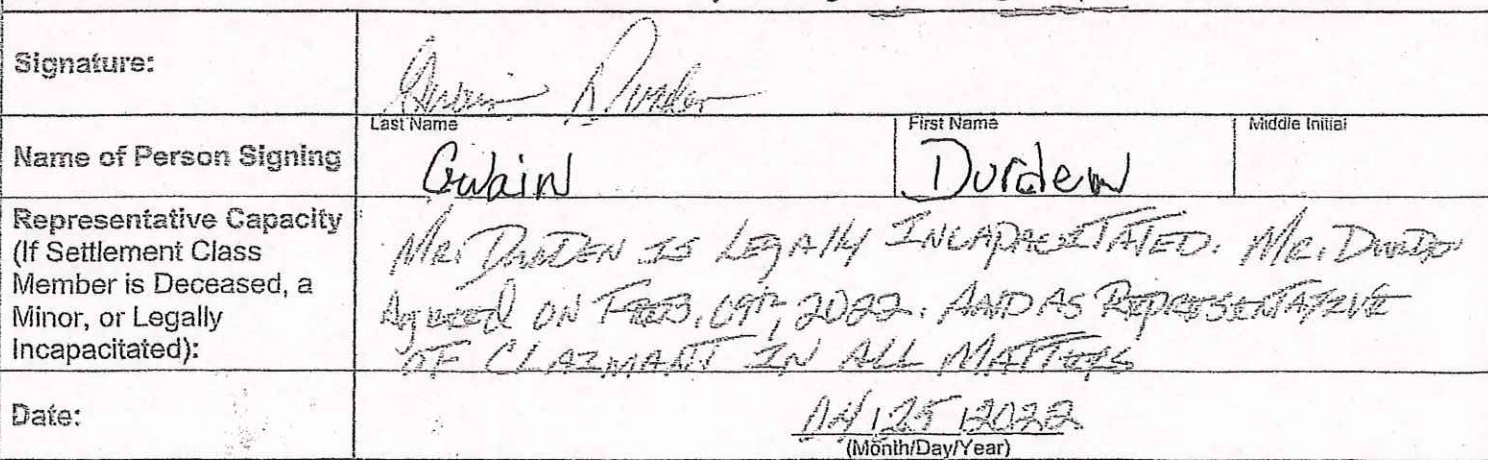 Signature:
Gwain Durden
Last Name First Name Middle Initial
Name of Person Signing Gwain Durden
Representative Capacity
(If Settlement Class
Member is Deceased, a
Minor, or Legally
Incapacitated):
Mr. Durden is Legally Incapacitated. Mr. Durden
Agreed on Feb. 09th, 2022. And as Representative
of Claimant in All Matters
Date: 04/25/2022
(Month/Day/Year)